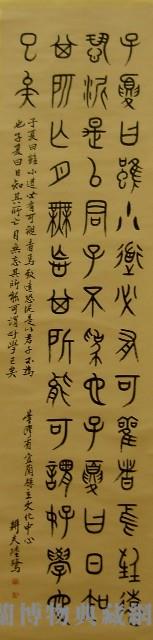 子夏曰雖小道必有可觀者焉致遠
恐泥是以君子不為也子夏曰日知
其所亡月無忘其所能可謂好學也
已矣
子夏曰雖小道必有可觀者焉致遠恐泥是以君子不為
也子夏曰日知其所亡月無忘其所能可謂好學也已矣
臺灣省宜蘭縣立文化中心
耕夫
蘭博物典藏網